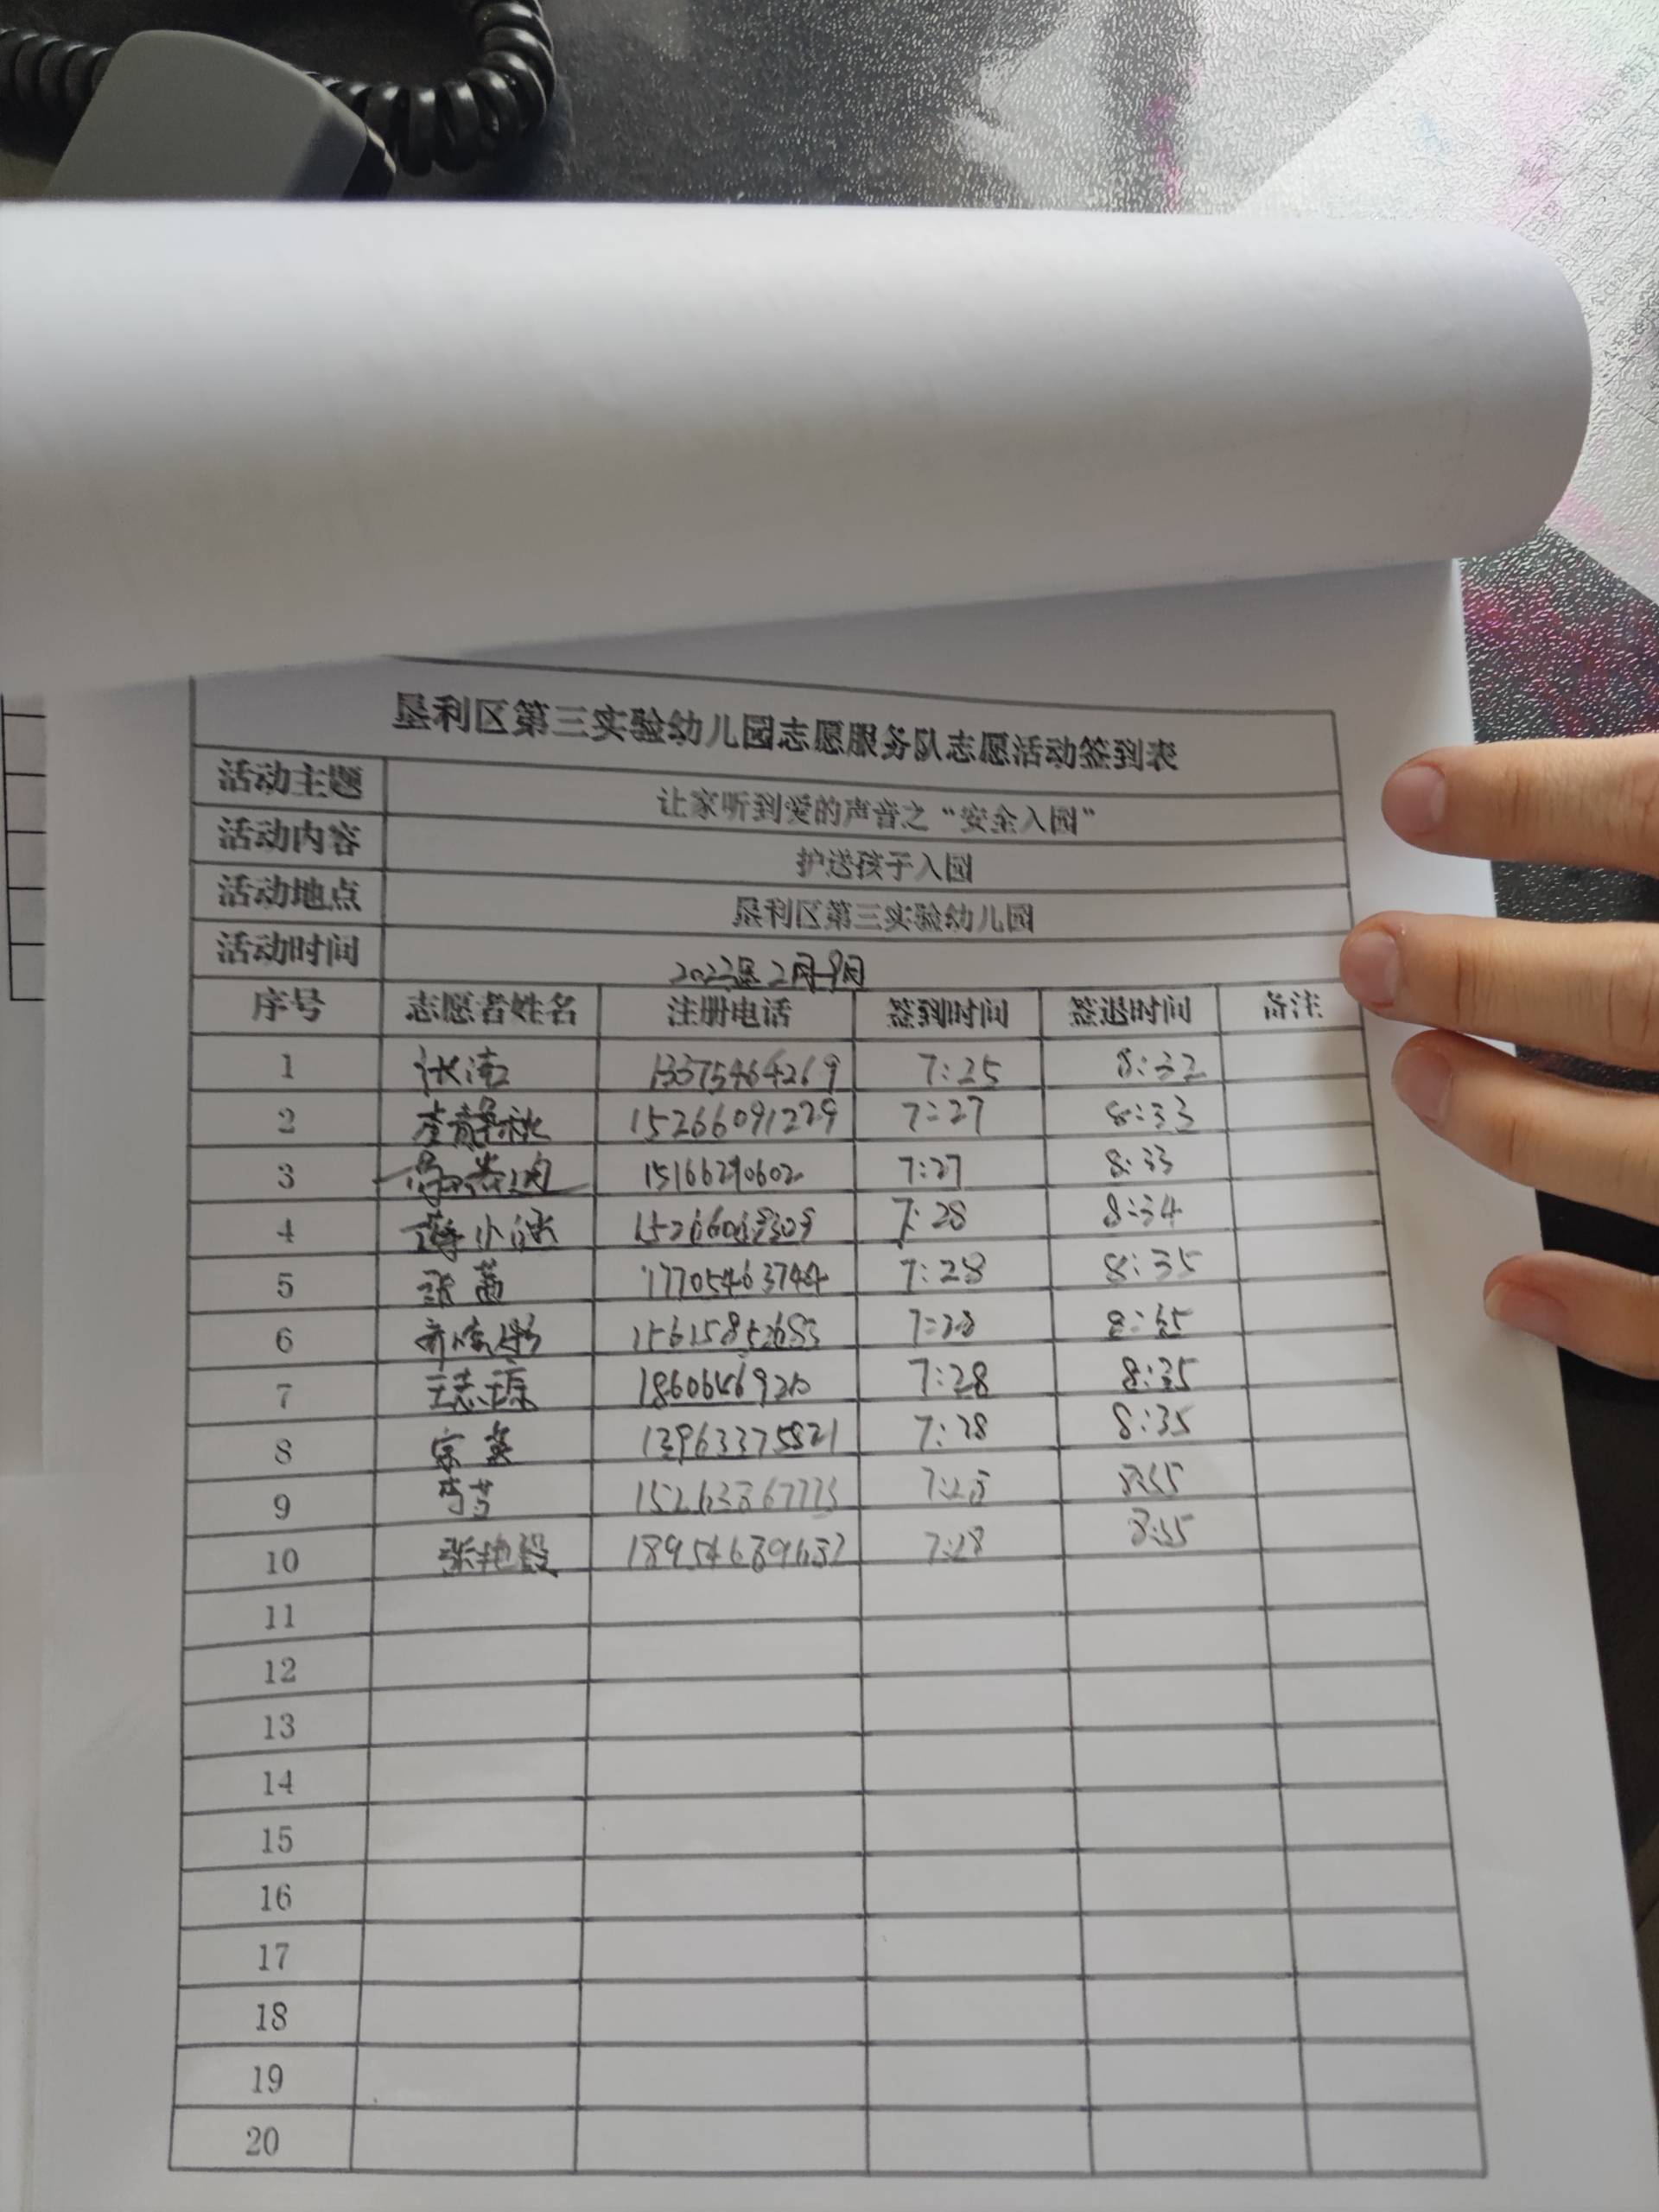 垦利区第三实验幼儿园志愿服务队志愿活动签到表
活动主题 让家听到爱的声音之“安全入园”
活动内容 护送孩子入园
活动地点 垦利区第三实验幼儿园
活动时间 2023 2月
序号 志愿者姓名 注册电话 签到时间 签退时间 备注
1 13375464269 7:25 8:32
2 15266091229 7:27 8:33
3 15166290602 7:27 8:33
4 小 7:28 8:34
5 张 17705463744 7:28 8:35
6 8:35
7 王志 7:28 8:35
8 宗 13963375821 7:28 8:35
9 7:28 8:35
10 张艳 18954689632 7:28 8:35
11
12
13
14
15
16
17
18
19
20